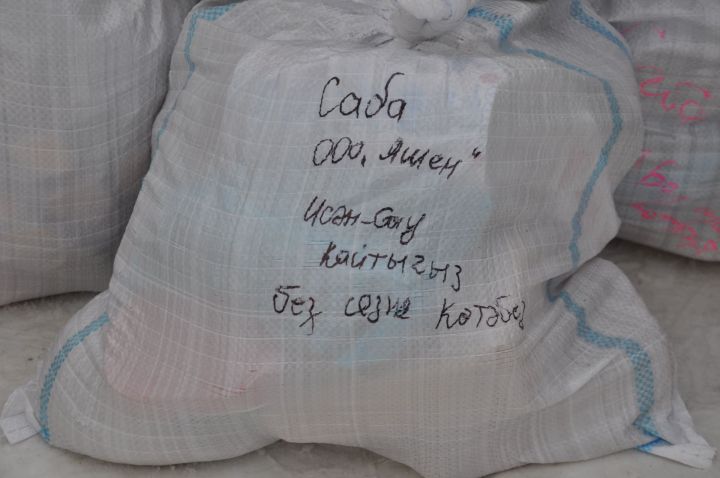 Саба
ООО „Яшен"
Исән-Сау
Кайтыгыз
без сезне көтәбез